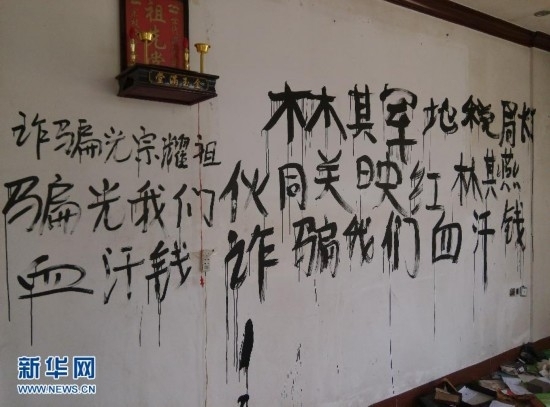 祖先堂
金玉滿堂
林其军地税局长
诈骗光宗耀祖
伙同关映红林其燕
骗光我们
诈骗我们血汗钱
血汗钱
新华网
WWW.NEWS.CN